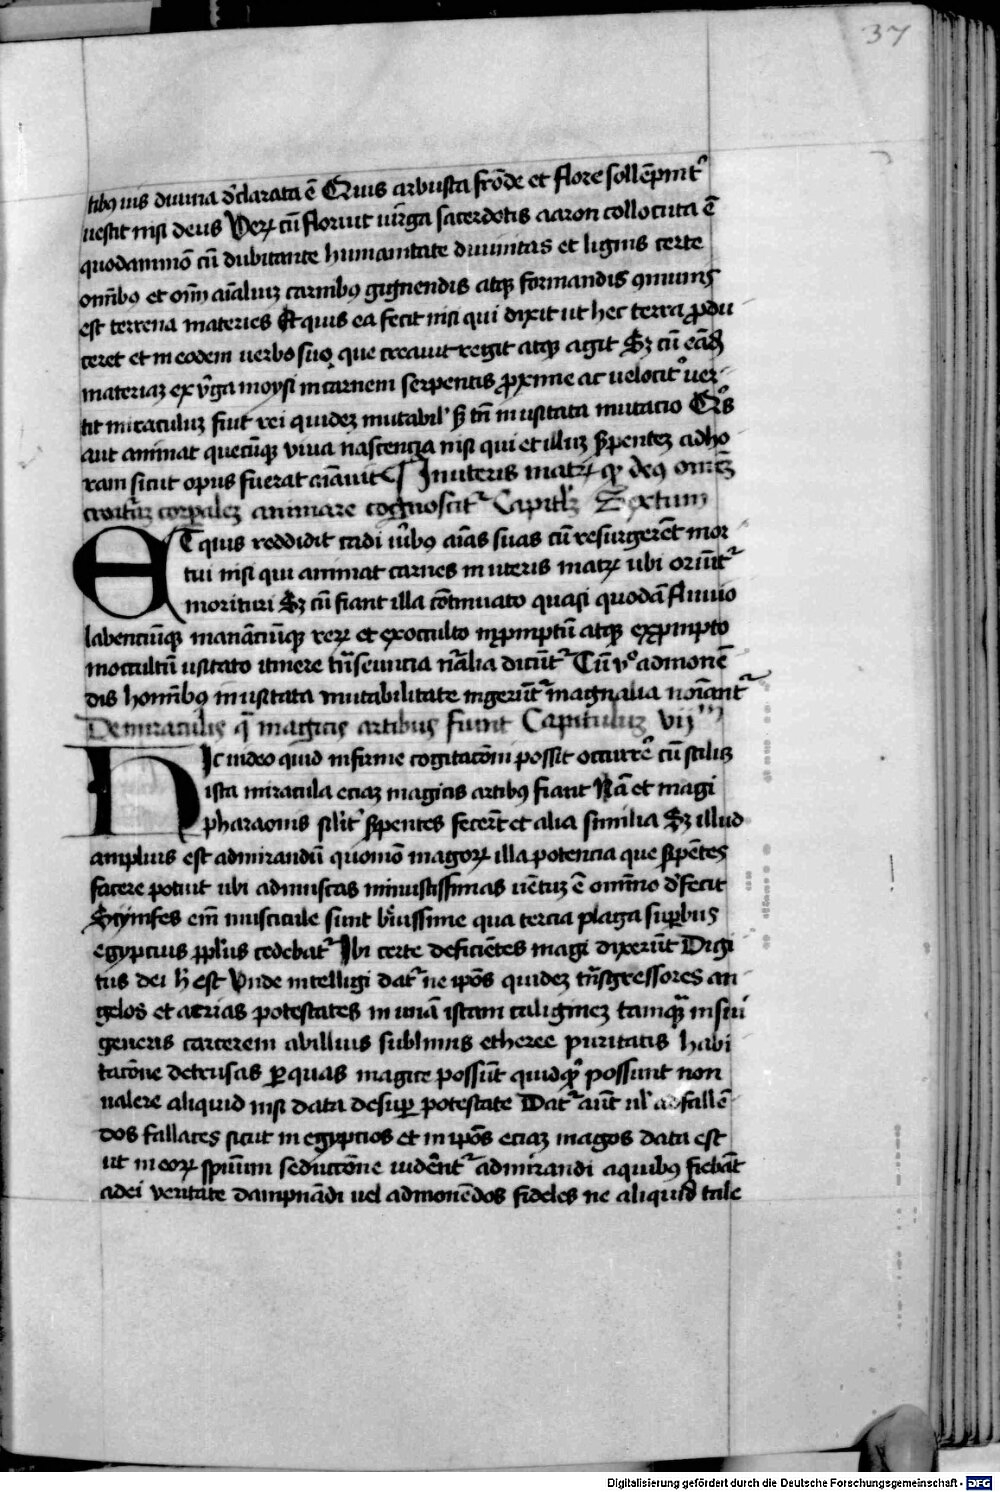 37
tibꝫ uis diuina dʾclarata ē Quis arbusta frōde et flore sollēpnitʾ
uestit nisi deus Verꝝ cū floruit uirga sacerdotis aaron collocuta ē
quodammō cū dubitante humanitate diuinitas et lignis certe
om̄ibꝫ et om̄i aīaliuꝫ carnibꝫ gignendis atqꝫ formandis ꝯmunis
est terrena materies Et quis ea fecit nisi qui dixit ut hec terra ꝓdu
ceret et in eodem uerbo suo que creauit regit atqꝫ agit Sꝫ cū eādē
materiaꝫ ex v̄ga moysi in carnem serpentis ꝓxime ac velocitʾ uer
tit miraculuꝫ fiut rei quideꝫ mutabilʾ sꝫ tn̄ inusitata mutacio Qͥs
aut animat quecūqꝫ viua nascencia nisi qui et illuꝫ sʾpenteꝫ ad ho
ram sicut opus fuerat aīauit ¶ In uteris matrꝝ qꝫ deꝰ om̄eꝫ
creat̄aꝫ corꝑaleꝫ animare cognoscitʾ Capitlʾꝫ Sextum
ET quis reddidit cadaūibꝫ aīas suas cū resurgerēt mor
tui nisi qui animat carnes in uteris matrꝝ ubi oriūtʾ
morituri Sꝫ cū fiant illa cōtinuato quasi quodā fluuio
labenciūqꝫ manāciūqꝫ rerꝝ et ex occulto in ꝓmptū atqꝫ ex ꝓmpto
in occultū usitato itinere trāseuncia nālia dicūtʾ Cū vͦ admonē
dis hominibꝫ inusitata mutabilitate ingerūtʾ magnalia noīantʾ
De miraculis q̄ magicis artibus fiunt Capituluꝫ vij m
HIc uideo quid infirme cogitacōni possit occurrēʾ cū scilꝫ
ista miracula eciaꝫ magicis artibꝫ fiant Nā et magi
pharaonis silʾitʾ sʾpentes fecerūt et alia similia Sꝫ illud
amplius est admirandū quomō magorꝝ illa potencia que sʾpētes
facere potuit ubi ad muscas minutissimas uētuꝫ ē omīno dʾfecit
Scynifes eīm muscicule sunt bʾuissime qua tercia plaga suꝑbus
egypcius ꝑplʾus cedebatʾ Ibi certe deficiētes magi dixerūt Digi
tus dei h̄ est Vnde intelligi datʾ ne ip̄os quideꝫ trāsgressores an
gelos et aerias potestates in imā istam caligineꝫ tamqꝫ in sui
generis carcerem ab illius sublimis etheree puritatis habi
tacōne detrusas ꝑ quas magice possūt quidqͥd possunt non
ualere aliquid nisi data desuꝑ potestate Datʾ aūt ulʾ ad fallē
dos fallaces sicut in egypcios et in ip̄os eciaꝫ magos data est
ut in eorꝝ spūum seductōne uidērētʾ admirandi a quibꝫ fiebāt
a dei veritate dampnādi uel admonēdos fideles ne aliquid tale
Digitalisierung gefördert durch die Deutsche Forschungsgemeinschaft - DFG